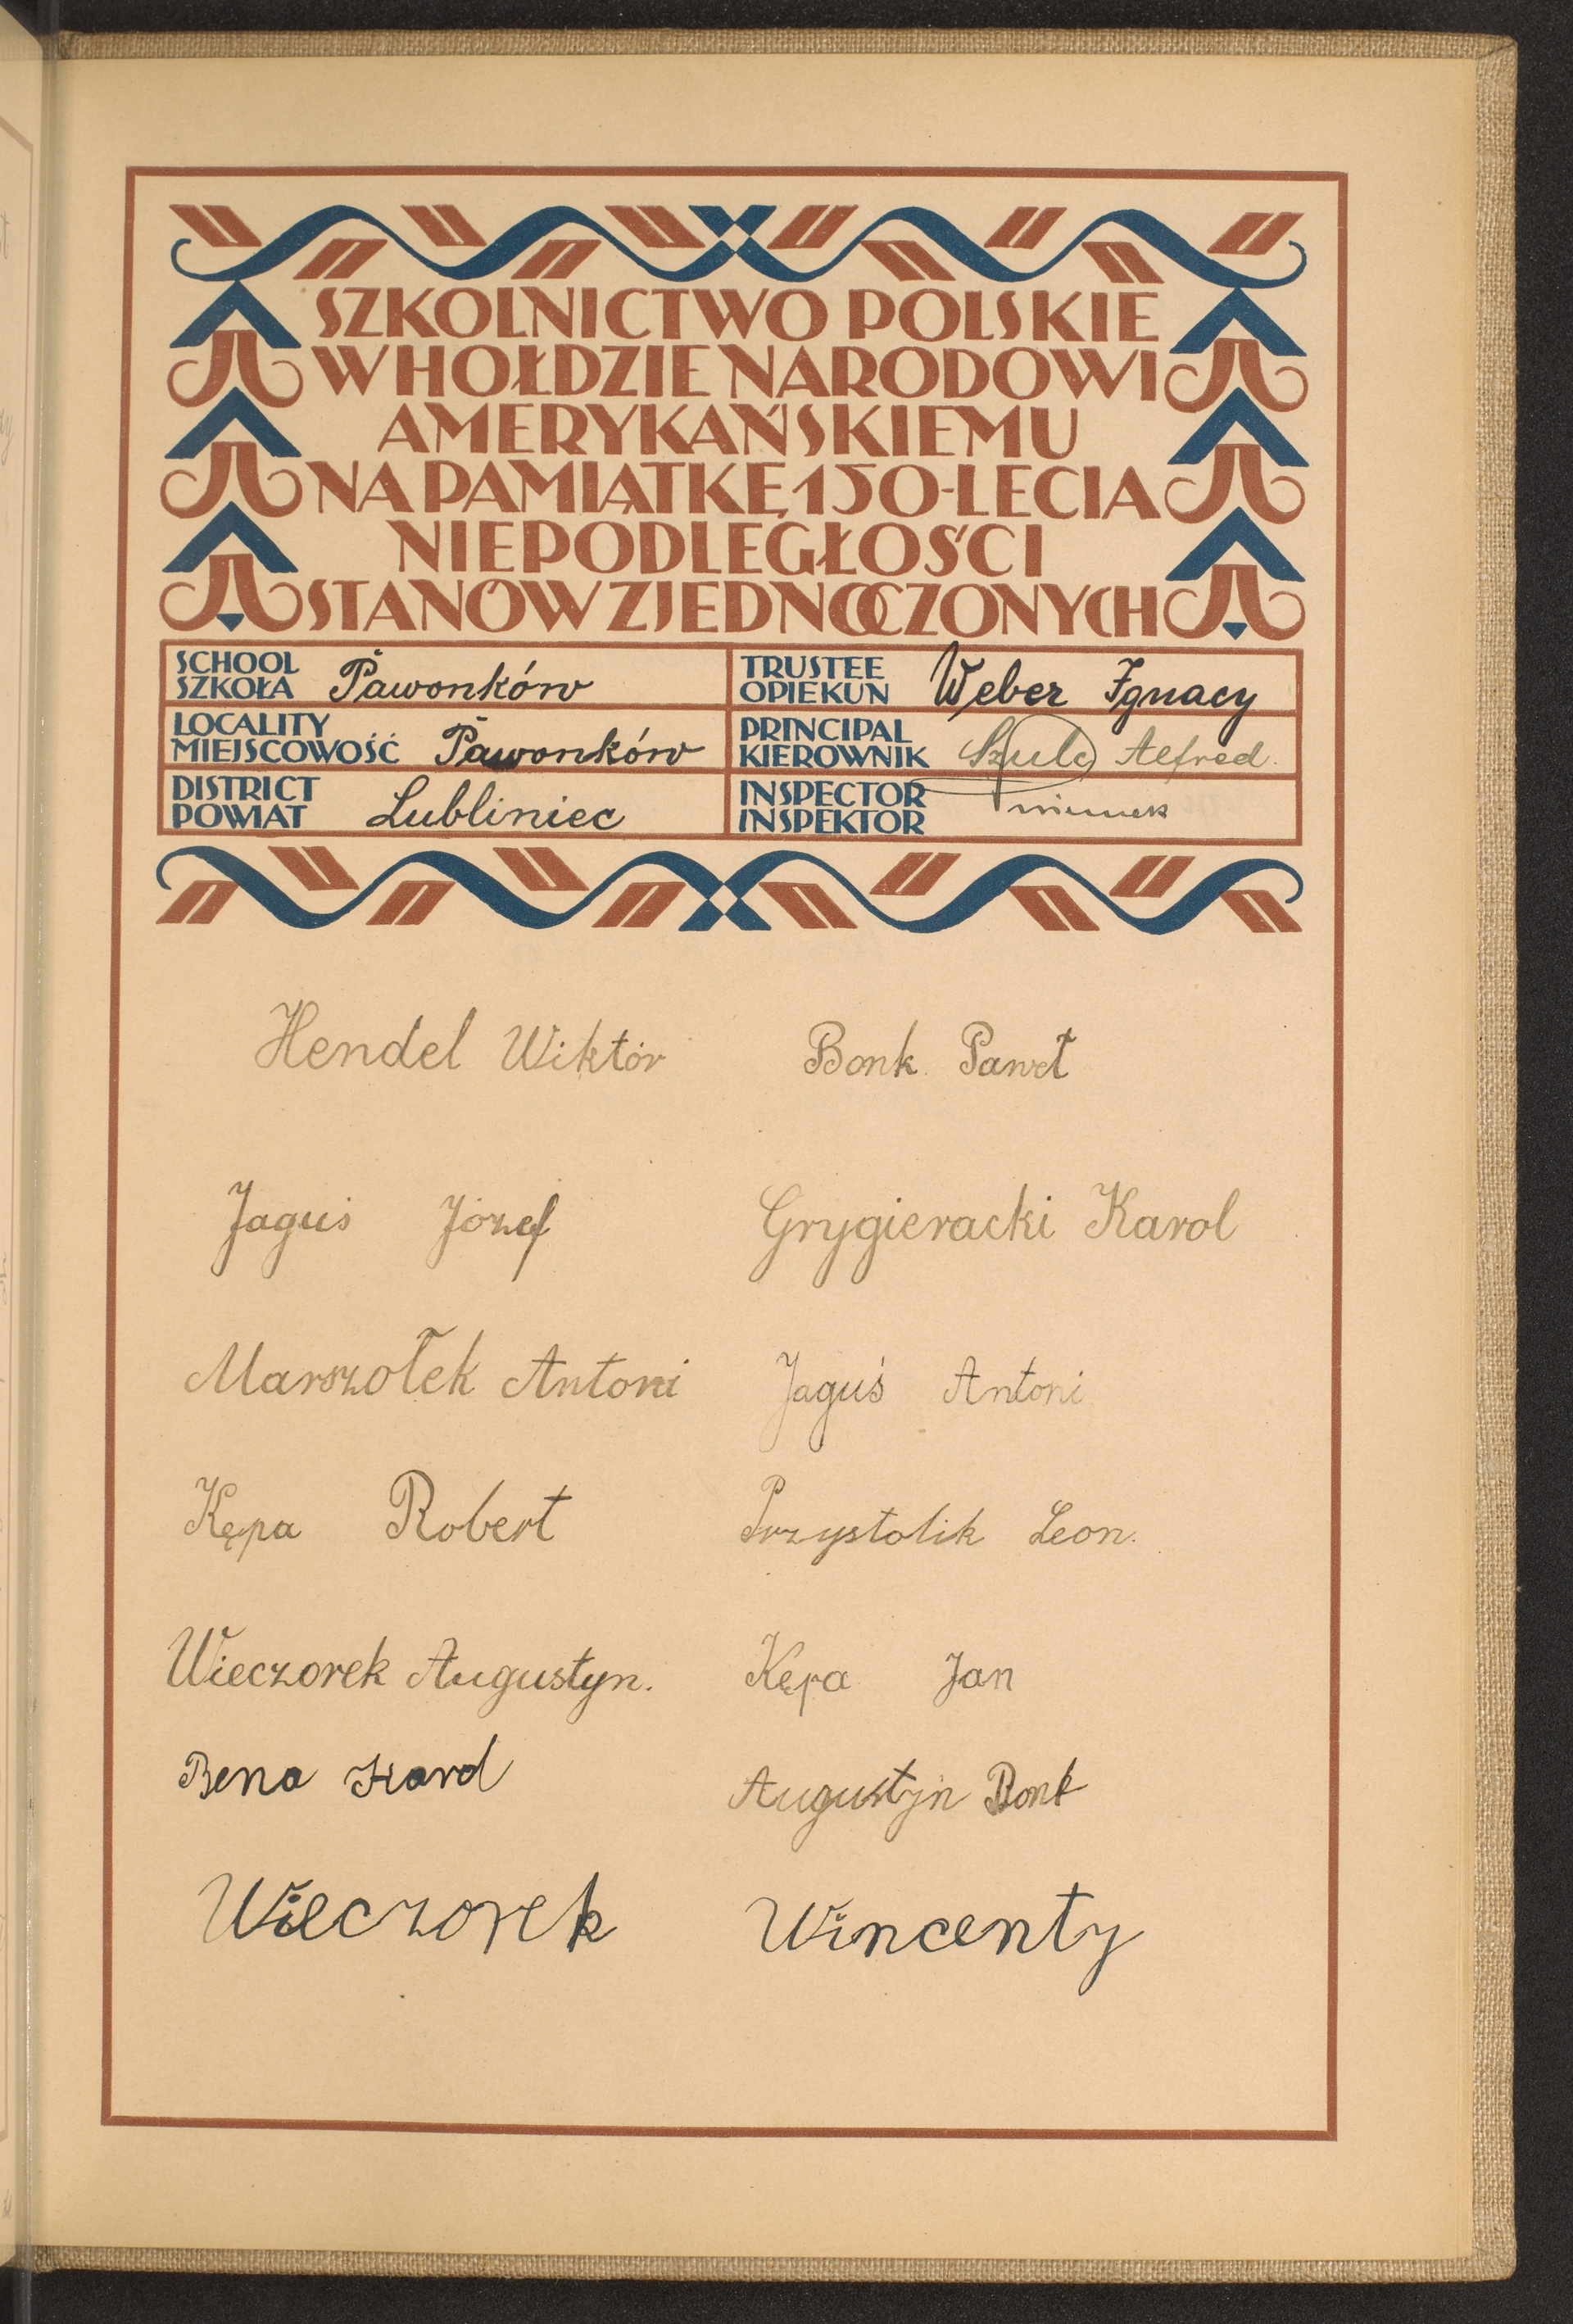 SZKOLNICTWO POLSKIE
W HOŁDZIE NARODOWI
AMERYKAŃSKIEMU
NA PAMIĄTKĘ 150-LECIA
NIEPODLEGŁOŚCI
STANÓW ZJEDNOCZONYCH
SCHOOL
SZKOŁA Pawonków
TRUSTEE
OPIEKUN Weber Ignacy
LOCALITY
MIEJSCOWOŚĆ Pawonków
PRINCIPAL
KIEROWNIK Szulc Alfred.
DISTRICT
POWIAT Lubliniec
INSPECTOR
INSPEKTOR
Hendel Wiktór Bonk Paweł
Jaguś Józef Grygieracki Karol
Marszołek Antoni Jaguś Antoni
Kępa Robert Przystolik Leon.
Wieczorek Augustyn. Kępa Jan
Bena Karol Augustyn Bonk
Wieczorek Wincenty